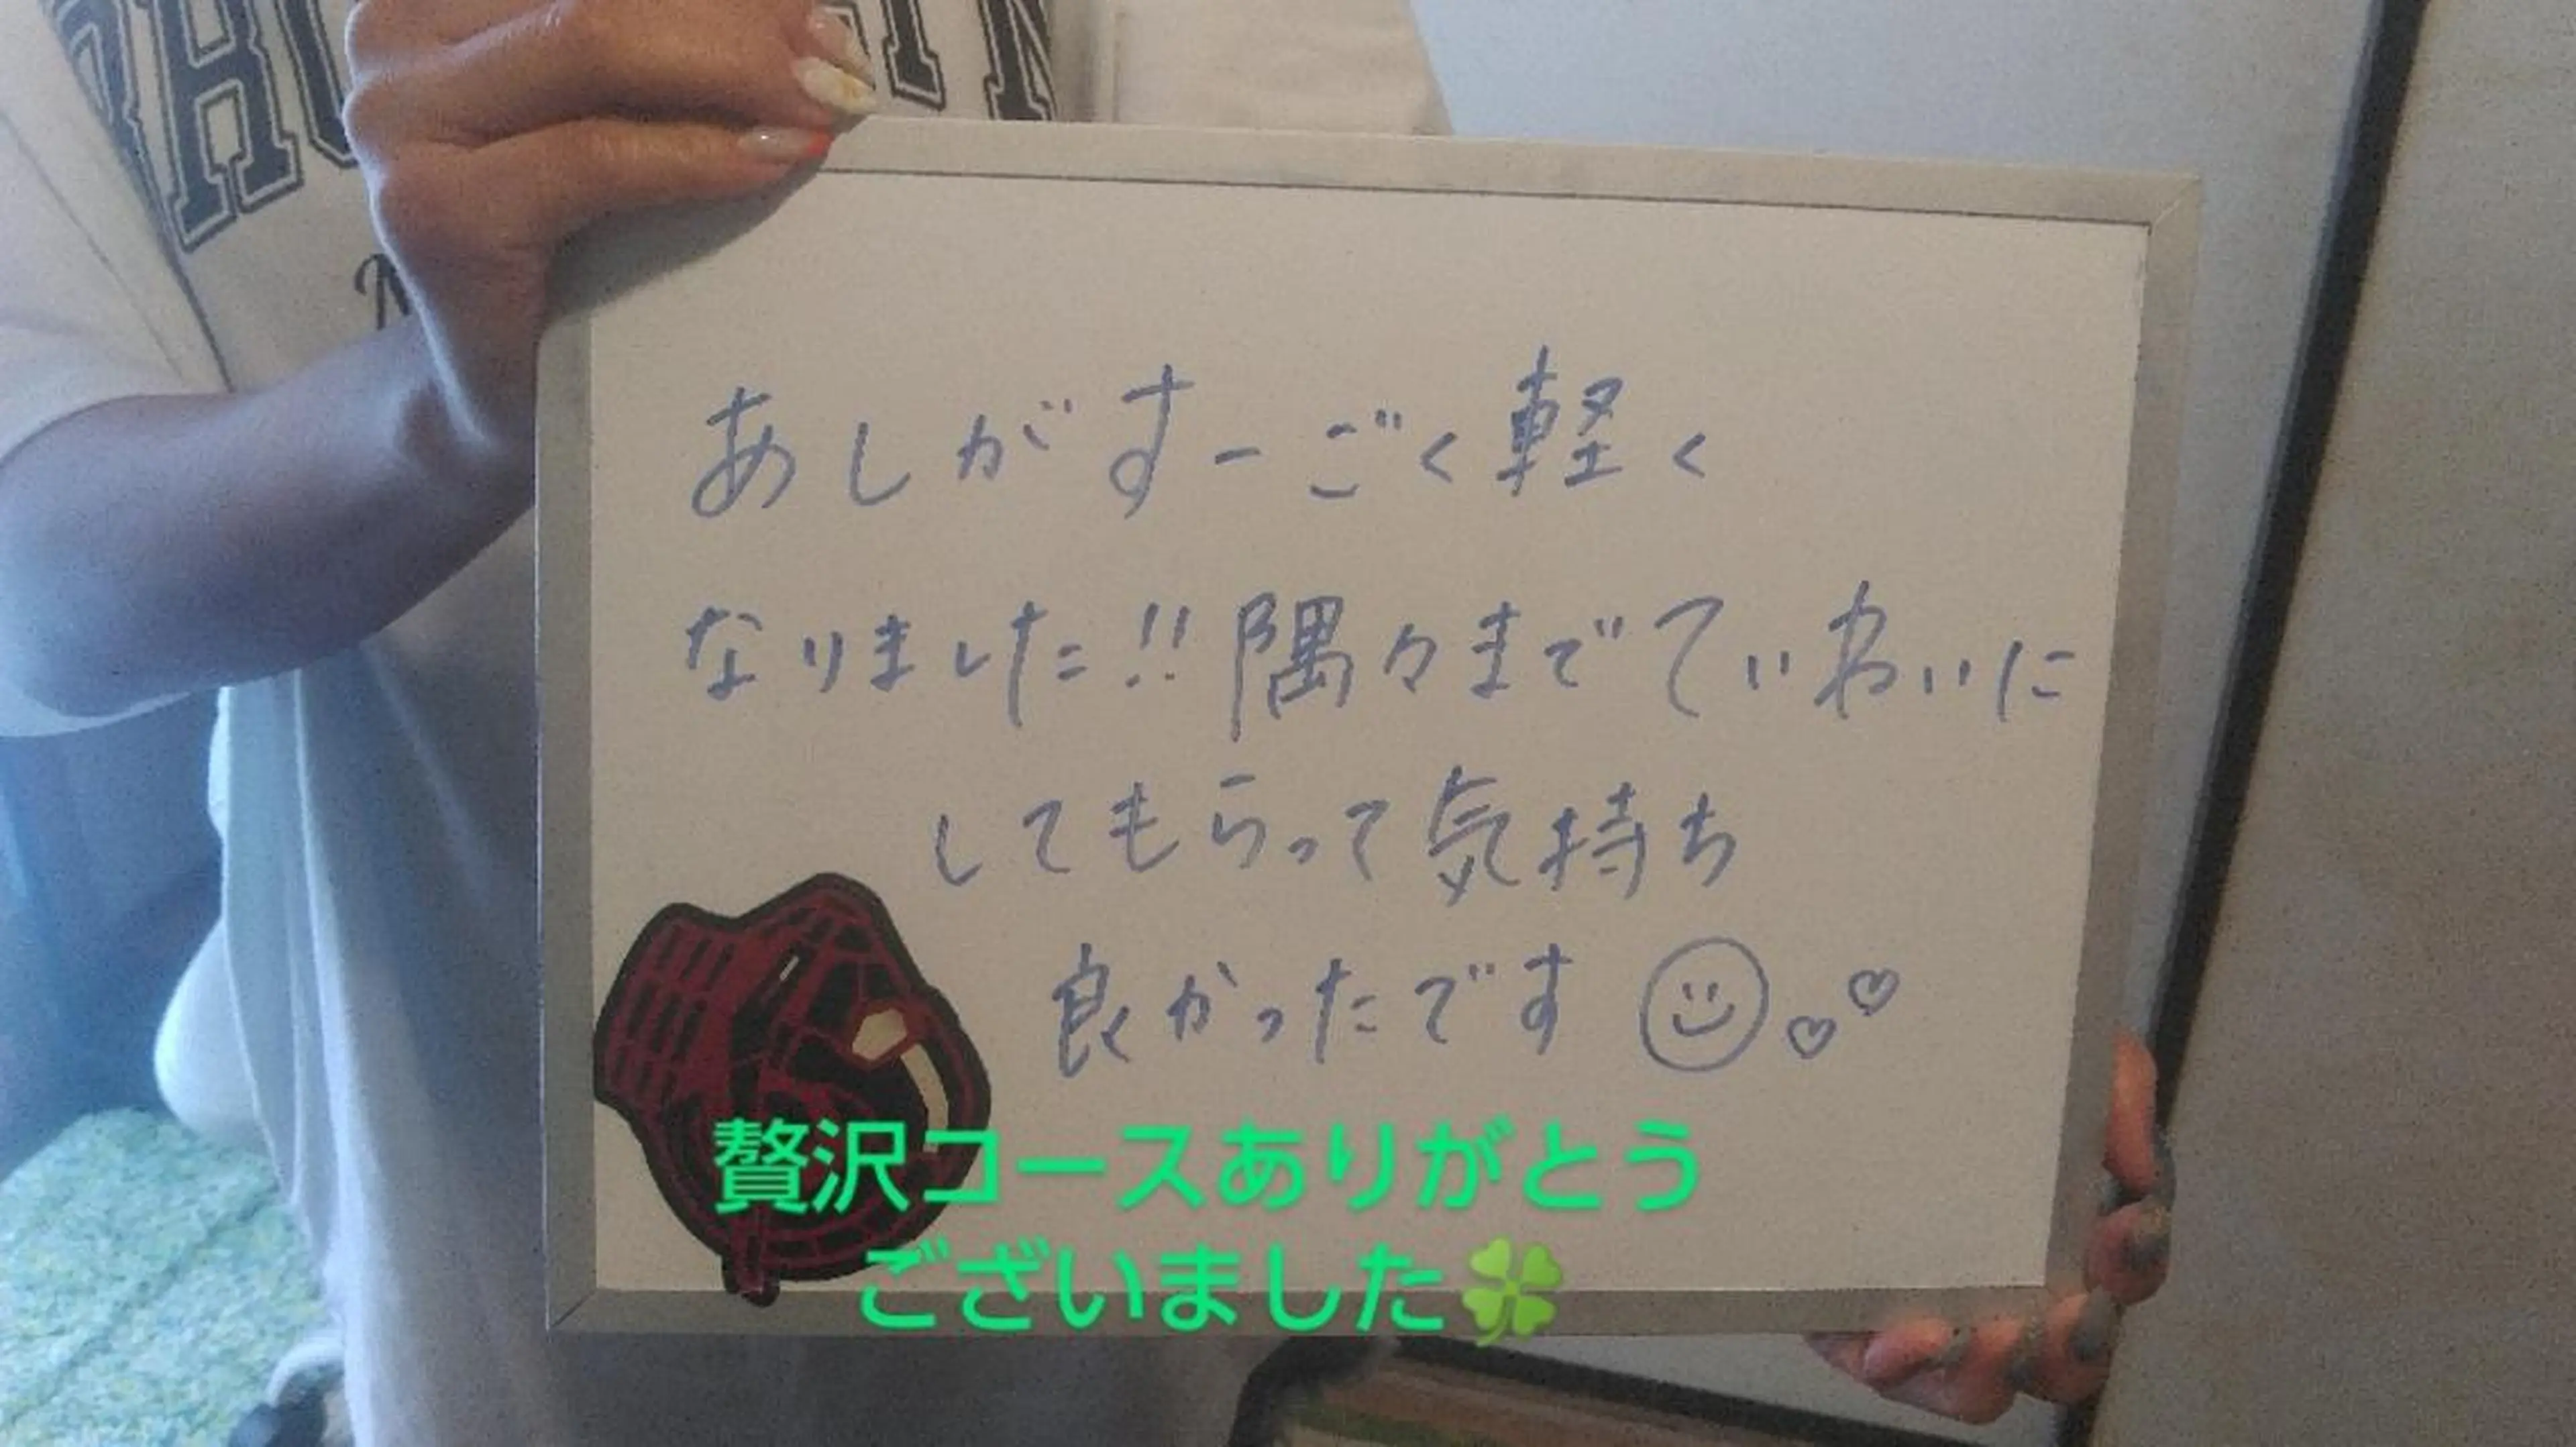 あしがすーごく軽く
なりました!!隅々までていねいに
してもらって気持ち
良かったです
贅沢コースありがとう
ございました🍀